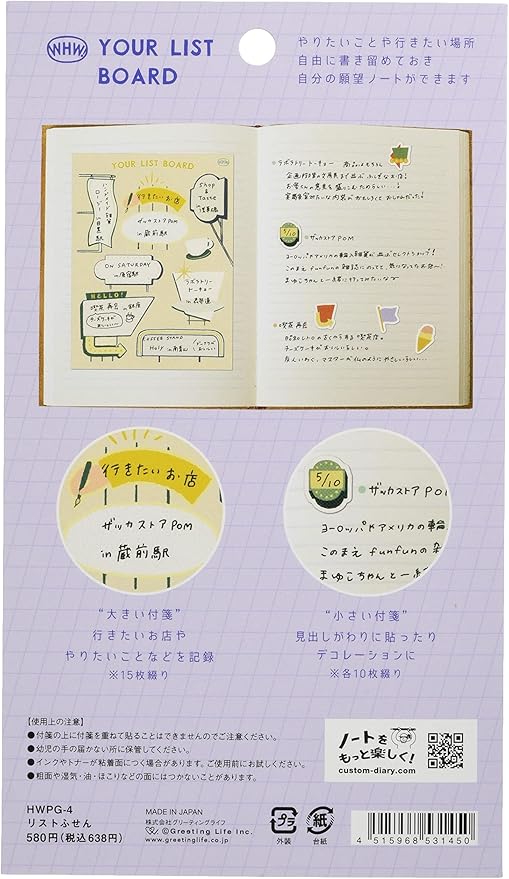 WHW
YOUR LIST
BOARD
やりたいことや行きたい場所
自由に書き留めておき
自分の願望ノートができます
YOUR LIST BOARD
WHW
Shop &
Taste
行きたいお店
ザッカストア POM
in 蔵前駅
ON SATURDAY
HELLO!
ラボラトリー
トーキョー
喫茶 再会
チーズケーキが
COFFEE STAND
Holy
ラボラトリートーキョー
ザッカストア POM
5/10
喫茶 再会
行きたいお店
ザッカストア POM
in 蔵前駅
5/10
ザッカストア POM
ヨーロッパやアメリカの輸
このまえ funfunの
まゆこちゃんと一緒
“大きい付箋”
行きたいお店や
やりたいことなどを記録
※15枚綴り
“小さい付箋”
見出しがわりに貼ったり
デコレーションに
※各10枚綴り
【使用上の注意】
●付箋の上に付箋を重ねて貼ることはできませんのでご注意ください。
●幼児の手の届かない所に保管してください。
●インクやトナーが粘着面につく場合があります。ご使用前にお試しください。
●粗面や湿気・油・ほこりなどの面にはつかないことがあります。
ノートを
もっと楽しく!
custom-diary.com
HWPG-4
リストふせん
580円(税込638円)
MADE IN JAPAN
株式会社グリーティングライフ
©Greeting Life Inc.
www.greetinglife.co.jp
プラ
外装
紙
台紙
4 515968 531450